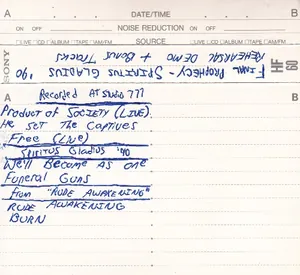 A DATE/TIME B
ON OFF NOISE REDUCTION ON OFF
□LIVE □CD □ALBUM □TAPE □AM/FM SOURCE □LIVE □CD □ALBUM □TAPE □AM/FM
SONY
FINAL PROPHECY - SPIRITUS GLADIUS '90
REHEARSAL DEMO + BONUS TRACKS
HF 60
A B
Recorded AT STUDIO 777
PRODUCT OF SOCIETY (LIVE)
He set The Captives
Free (Live)
SPIRITUS GLADIUS '90
We'll Become As one
Funeral Guns
from "RUDE AWAKENING"
RUDE AWAKENING
BURN